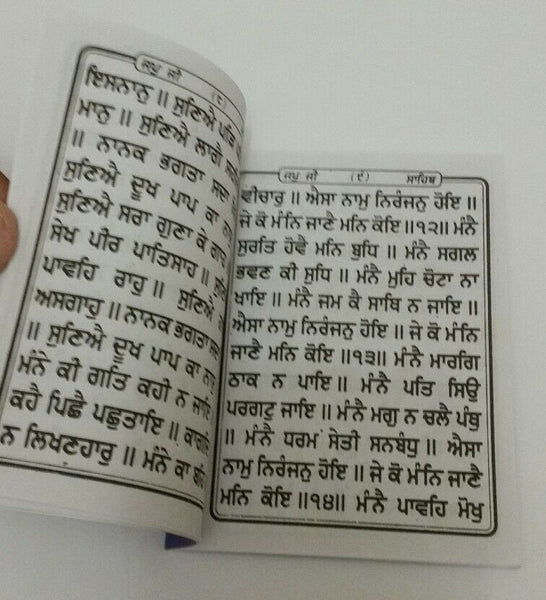 ਜਪੁ ਜੀ (੮)
ਇਸਨਾਨੁ ॥ ਸੁਣਿਐ ਪੜਿ
ਮਾਨੁ ॥ ਸੁਣਿਐ ਲਾਗੈ
॥ ਨਾਨਕ ਭਗਤਾ ਸਦਾ
ਸੁਣਿਐ ਦੂਖ ਪਾਪ ਕਾ
ਸੁਣਿਐ ਸਰਾ ਗੁਣਾ ਕੇ ਗਾਹ
ਸੇਖ ਪੀਰ ਪਾਤਿਸਾਹ ॥
ਪਾਵਹਿ ਰਾਹੁ ॥ ਸੁਣਿਐ
ਅਸਗਾਹੁ ॥ ਨਾਨਕ ਭਗਤਾ ਸਦਾ
॥ ਸੁਣਿਐ ਦੂਖ ਪਾਪ ਕਾ
ਮੰਨੇ ਕੀ ਗਤਿ ਕਹੀ ਨ ਜਾਇ
ਕਹੈ ਪਿਛੈ ਪਛੁਤਾਇ ॥ ਕਾਗਦਿ
ਨ ਲਿਖਣਹਾਰੁ ॥ ਮੰਨੇ ਕਾ ਬਹਿ
ਜਪੁ ਜੀ (੯) ਸਾਹਿਬ
ਵੀਚਾਰੁ ॥ ਐਸਾ ਨਾਮੁ ਨਿਰੰਜਨੁ ਹੋਇ ॥
ਜੇ ਕੋ ਮੰਨਿ ਜਾਣੈ ਮਨਿ ਕੋਇ ॥੧੨॥ ਮੰਨੈ
ਸੁਰਤਿ ਹੋਵੈ ਮਨਿ ਬੁਧਿ ॥ ਮੰਨੈ ਸਗਲ
ਭਵਣ ਕੀ ਸੁਧਿ ॥ ਮੰਨੈ ਮੁਹਿ ਚੋਟਾ ਨਾ
ਖਾਇ ॥ ਮੰਨੈ ਜਮ ਕੈ ਸਾਥਿ ਨ ਜਾਇ ॥
ਐਸਾ ਨਾਮੁ ਨਿਰੰਜਨੁ ਹੋਇ ॥ ਜੇ ਕੋ ਮੰਨਿ
ਜਾਣੈ ਮਨਿ ਕੋਇ ॥੧੩॥ ਮੰਨੈ ਮਾਰਗਿ
ਠਾਕ ਨ ਪਾਇ ॥ ਮੰਨੈ ਪਤਿ ਸਿਉ
ਪਰਗਟੁ ਜਾਇ ॥ ਮੰਨੈ ਮਗੁ ਨ ਚਲੈ ਪੰਥੁ
॥ ਮੰਨੈ ਧਰਮ ਸੇਤੀ ਸਨਬੰਧੁ ॥ ਐਸਾ
ਨਾਮੁ ਨਿਰੰਜਨੁ ਹੋਇ ॥ ਜੇ ਕੋ ਮੰਨਿ ਜਾਣੈ
ਮਨਿ ਕੋਇ ॥੧੪॥ ਮੰਨੈ ਪਾਵਹਿ ਮੋਖੁ